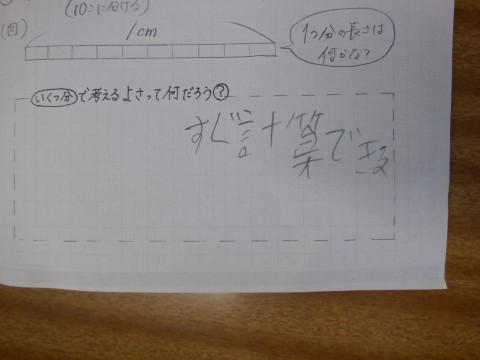 (10こに分ける)
(図)
1cm
1つ分の長さは
何かな?
いくつ分で考えるよさって何だろう?
すぐ計算できる